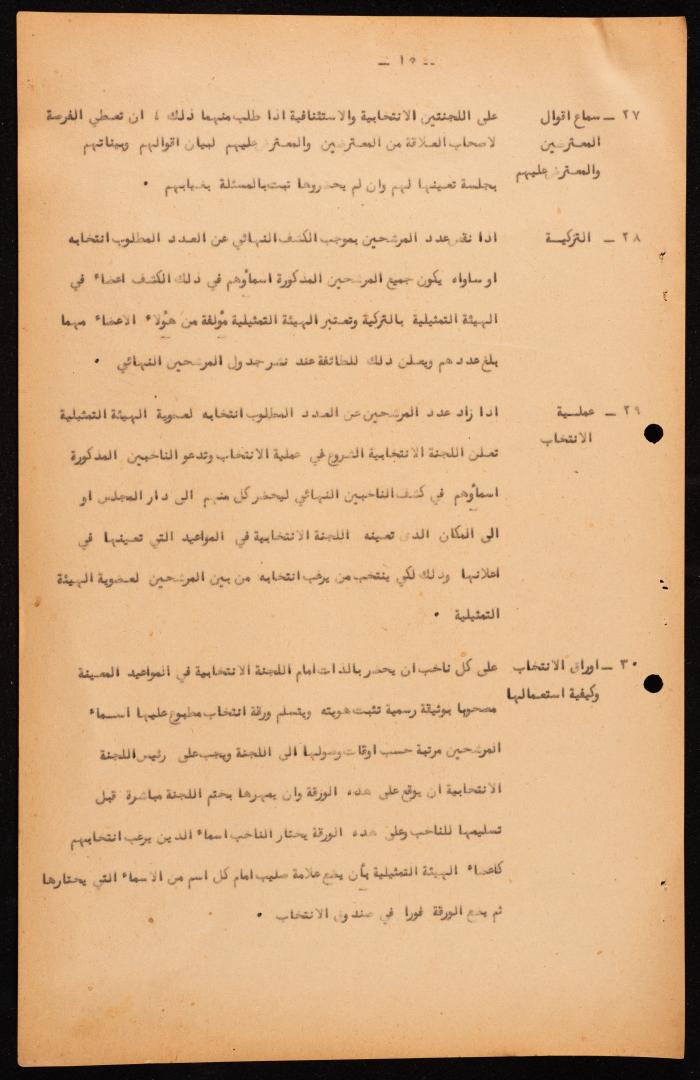 ـ ١٥ ـ
٢٧ ـ سماع اقوال على اللجنتين الانتخابية والاستئنافية اذا طلب منهما ذلك ، ان تعطي الفرصة
المعترضين لاصحاب العلاقة من المعترضين والمعترض عليهم لبيان اقوالهم وبيناتهم
والمعترض عليهم بجلسة تعينها لهم وان لم يحضروها تبت بالمسئلة بغيابهم .
٢٨ ـ التزكية اذا نقص عدد المرشحين بموجب الكشف النهائي عن العدد المطلوب انتخابه
او ساواه يكون جميع المرشحين المذكورة اسماؤهم في ذلك الكشف اعضاء في
الهيئة التمثيلية بالتزكية وتعتبر الهيئة التمثيلية مؤلفة من هؤلاء الاعضاء مهما
بلغ عددهم ويعلن ذلك للطائفة عند نشر جدول المرشحين النهائي .
٢٩ ـ عملية اذا زاد عدد المرشحين عن العدد المطلوب انتخابه لعضوية الهيئة التمثيلية
الانتخاب
تعلن اللجنة الانتخابية الشروع في عملية الانتخاب وتدعو الناخبين المذكورة
اسماؤهم في كشف الناخبين النهائي ليحضر كل منهم الى دار المجلس او
الى المكان الذى تعينه اللجنة الانتخابية في المواعيد التي تعينها في
اعلانها وذلك لكي ينتخب من يرغب انتخابه من بين المرشحين لعضوية الهيئة
التمثيلية .
٣٠ ـ اوراق الانتخاب على كل ناخب ان يحضر بالذات امام اللجنة الانتخابية في المواعيد المعينة
وكيفية استعمالها
مصحوبا بوثيقة رسمية تثبت هويته ويتسلم ورقة انتخاب مطبوع عليها اسماء
المرشحين مرتبة حسب اوقات وصولها الى اللجنة ويجب على رئيس اللجنة
الانتخابية ان يوقع على هذه الورقة وان يمهرها بختم اللجنة مباشرة قبل
تسليمها للناخب وعلى هذه الورقة يختار الناخب اسماء الذين يرغب انتخابهم
كاعضاء الهيئة التمثيلية بأن يضع علامة صليب امام كل اسم من الاسماء التي يختارها
ثم يضع الورقة فورا في صندوق الانتخاب .